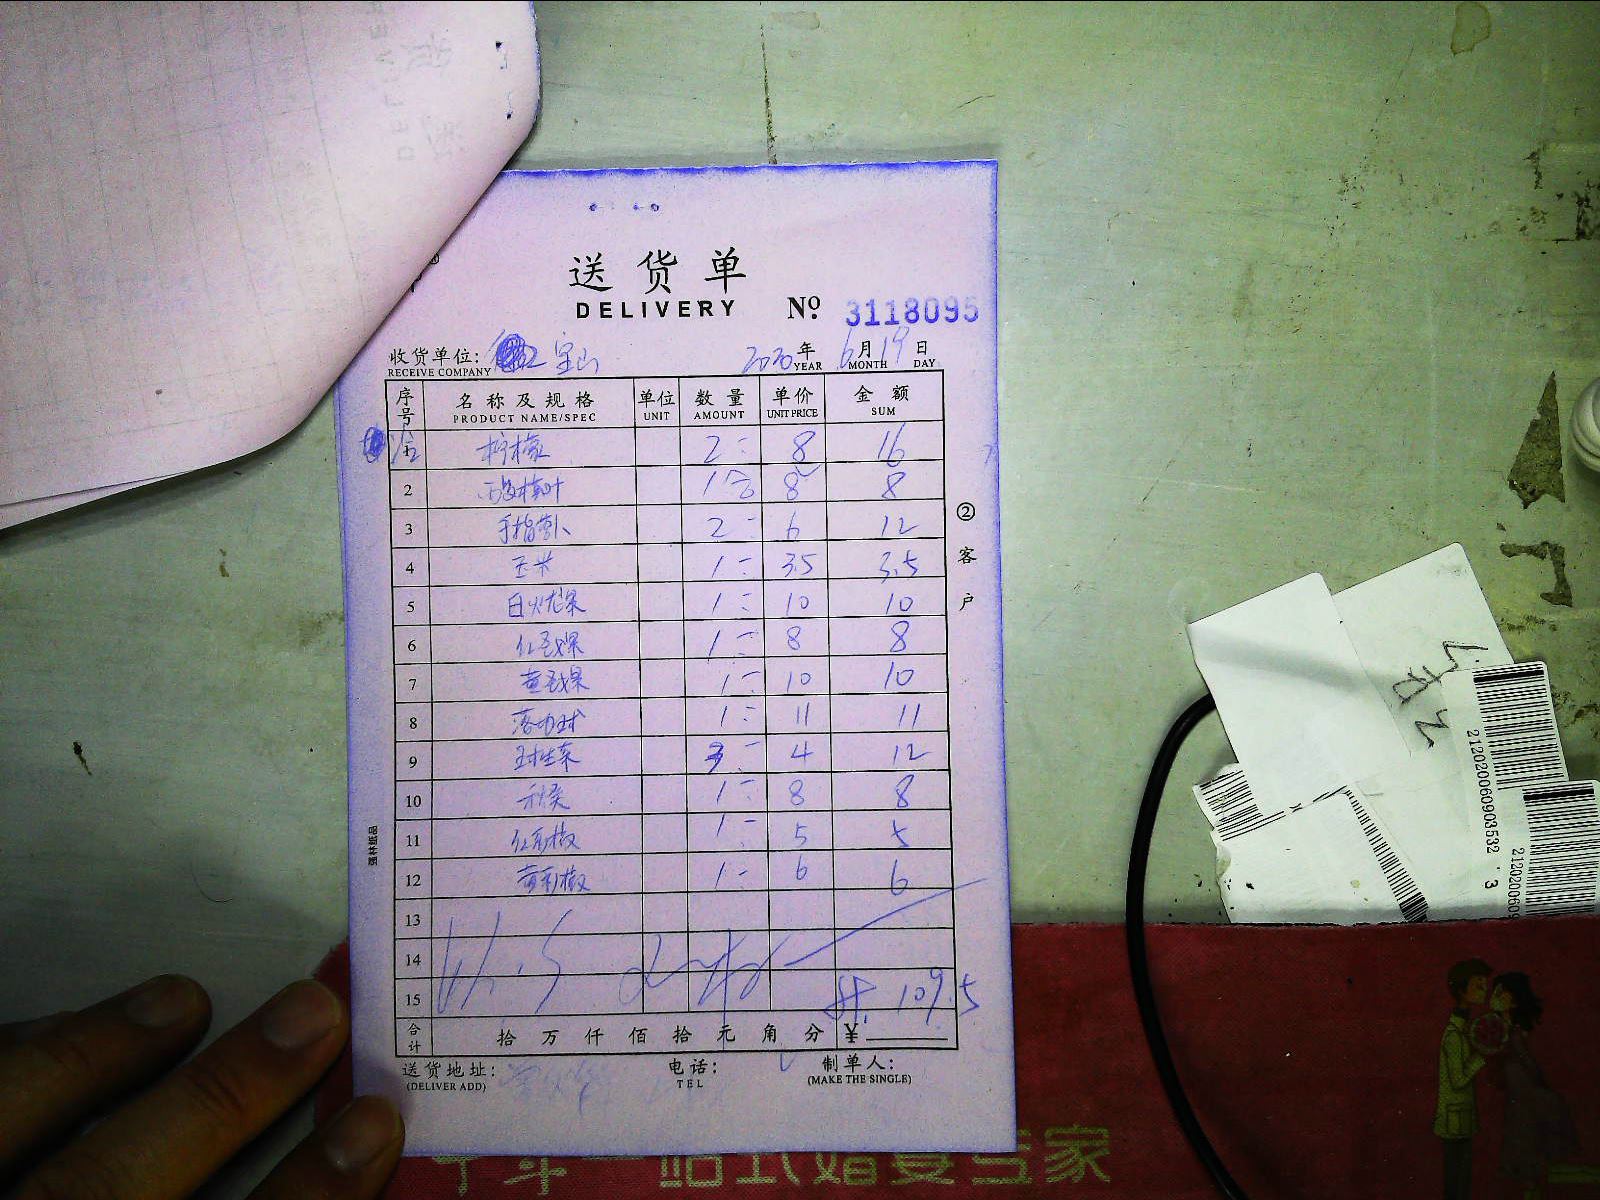 送货单
DELIVERY № 3118095
收货单位: 宝山 2020年 6月 19日
RECEIVE COMPANY YEAR MONTH DAY
序号 名称及规格 单位 数量 单价 金额
PRODUCT NAME/SPEC UNIT AMOUNT UNIT PRICE SUM
1 柠檬 2 8 16
2 8 8
3 手指萝卜 2 6 12
4 玉米 1 3.5 3.5
5 白火龙果 1 10 10
6 红圣女果 1 8 8
7 黄圣女果 1 10 10
8 1 11 11
9 球生菜 3 4 12
10 秋葵 1 8 8
11 红彩椒 1 5 5
12 黄彩椒 1 6 6
13
14
15 共 109.5
合计 拾 万 仟 佰 拾 元 角 分 ¥
送货地址: 电话: 制单人:
(DELIVER ADD) TEL (MAKE THE SINGLE)
②客户
强林纸品
212020060903532 3
2120200609
站式婚宴专家